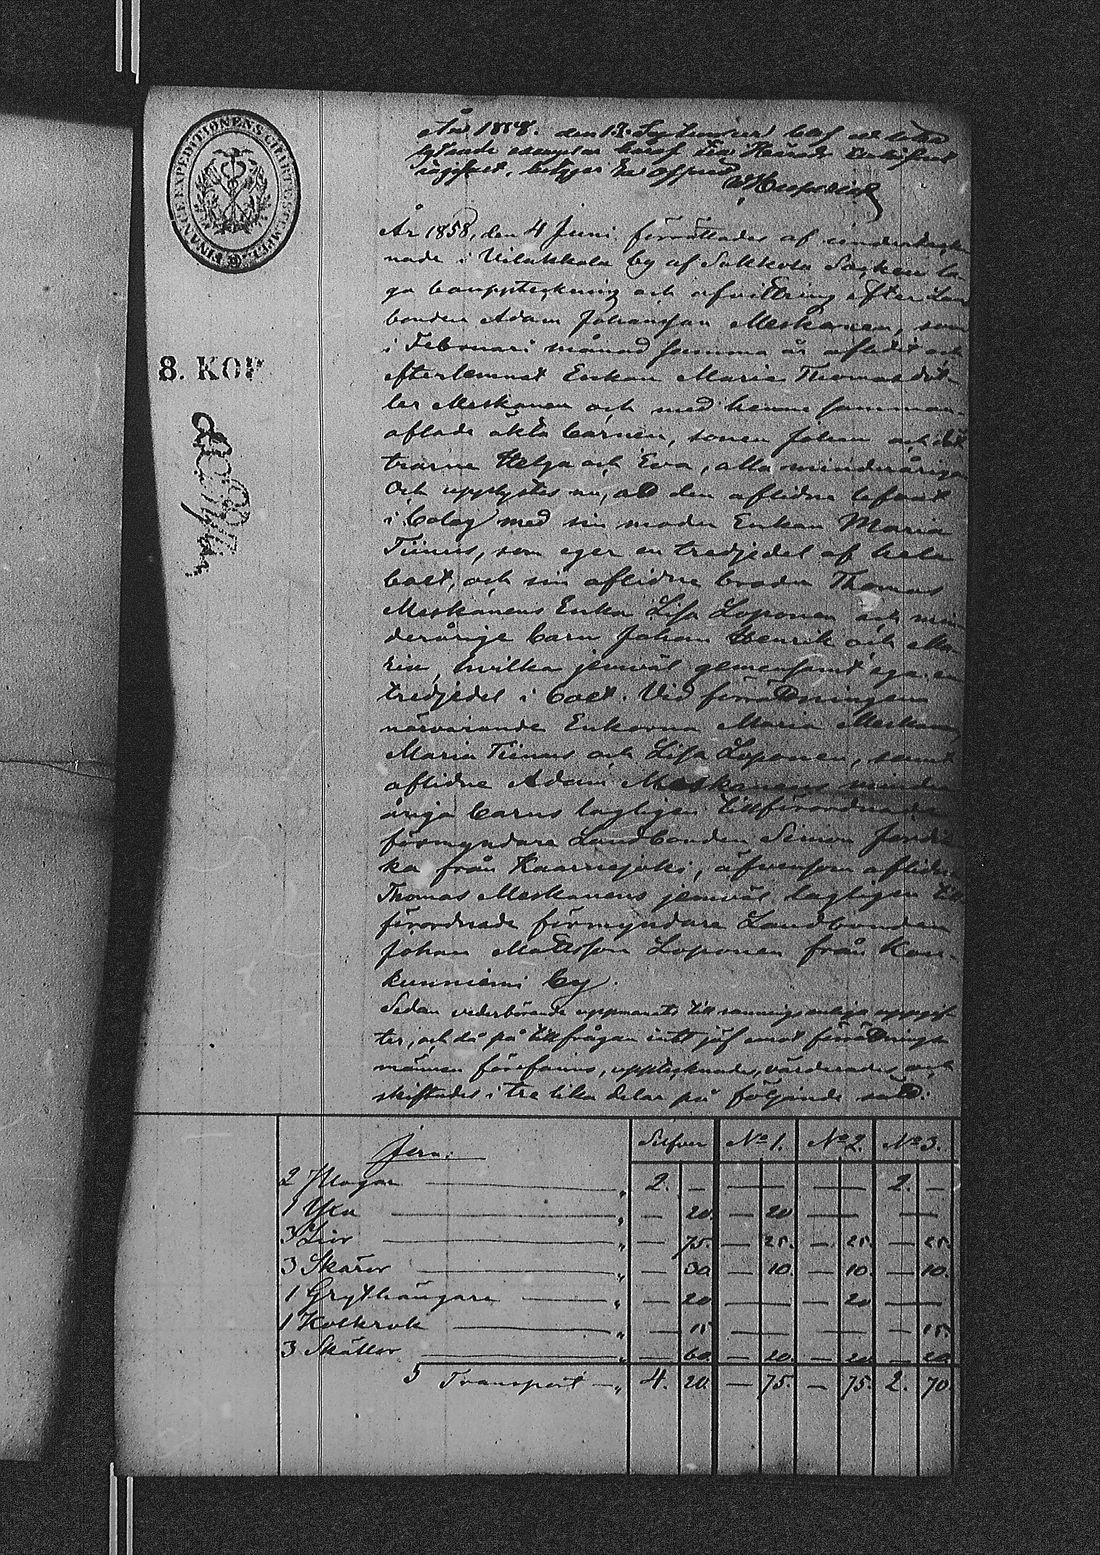 FINANCE EXPEDITIONENS CHARTÆ STEMPEL
År 1858. den 13 September blef ett lika
lydande exemplar häraf till Härads
ingifvet, betygar Ex officio
8. KOP
År 1858, den 4 Juni förrättades af underteckn
nade i Vilakkala by af Sakkola Socken la
ga bouppteckning och afvittring efter Lan
bonden Adam Johansson Meskanen, som
i Februari månad samma år aflidit och
efterlemnat Enkan Maria Thomasdot-
ter Meskanen och med henne samman-
aflade äkta barnen, sonen Johan och döt
trarne Helga och Eva, alla minderåriga
Och upplystes nu, att den aflidne lefvat
i bolag med sin moder Enkan Maria
Tiinus, som eger en tredjedel af hela
boet, och sin aflidne broder Thomas
Meskanens Enka Lisa Loponen och min
derårige barn Johan Henrik och Ma
ria, hvilka jemväl gemensamt ega en
tredjedel i boet. Vid förrättningen
närvarande Enkorna Maria Meskanen
Maria Tiinus och Lisa Loponen, samt
aflidne Adam Meskanens minder
åriga barns lagligen tillförordnade
förmyndare Landbonden Simon
ka från Kaarnejoki, äfvensom aflidne
Thomas Meskanens jemväl lagligen till
förordnade förmyndare Landbonden
Johan Mattsson Loponen från
kunniemi by.
Sedan vederbörande uppmanats till sanningsenliga uppgif
ter, och då på tillfrågan intet jäf emot förrättnings
männen förefanns, upptecknades, värderades och
skiftades i tre lika delar på följande sätt:
Jern: Silfver No 1. No 2. No 3.
2 Plogar " 2. — — — 2. —
1 Yxa " — 20. — 20 — —
3 Liar " — 75. — 25. — 25. — 25.
3 Skäror " — 30. — 10. — 10. — 10.
1 Grythängare " — 20 — — 20 —
1 Kolkrok " — 15 — — — 15.
3 Skällor " — 60. — 20. — 20. — 20.
S Transport " 4. 20. — 75. — 75. 2. 70.